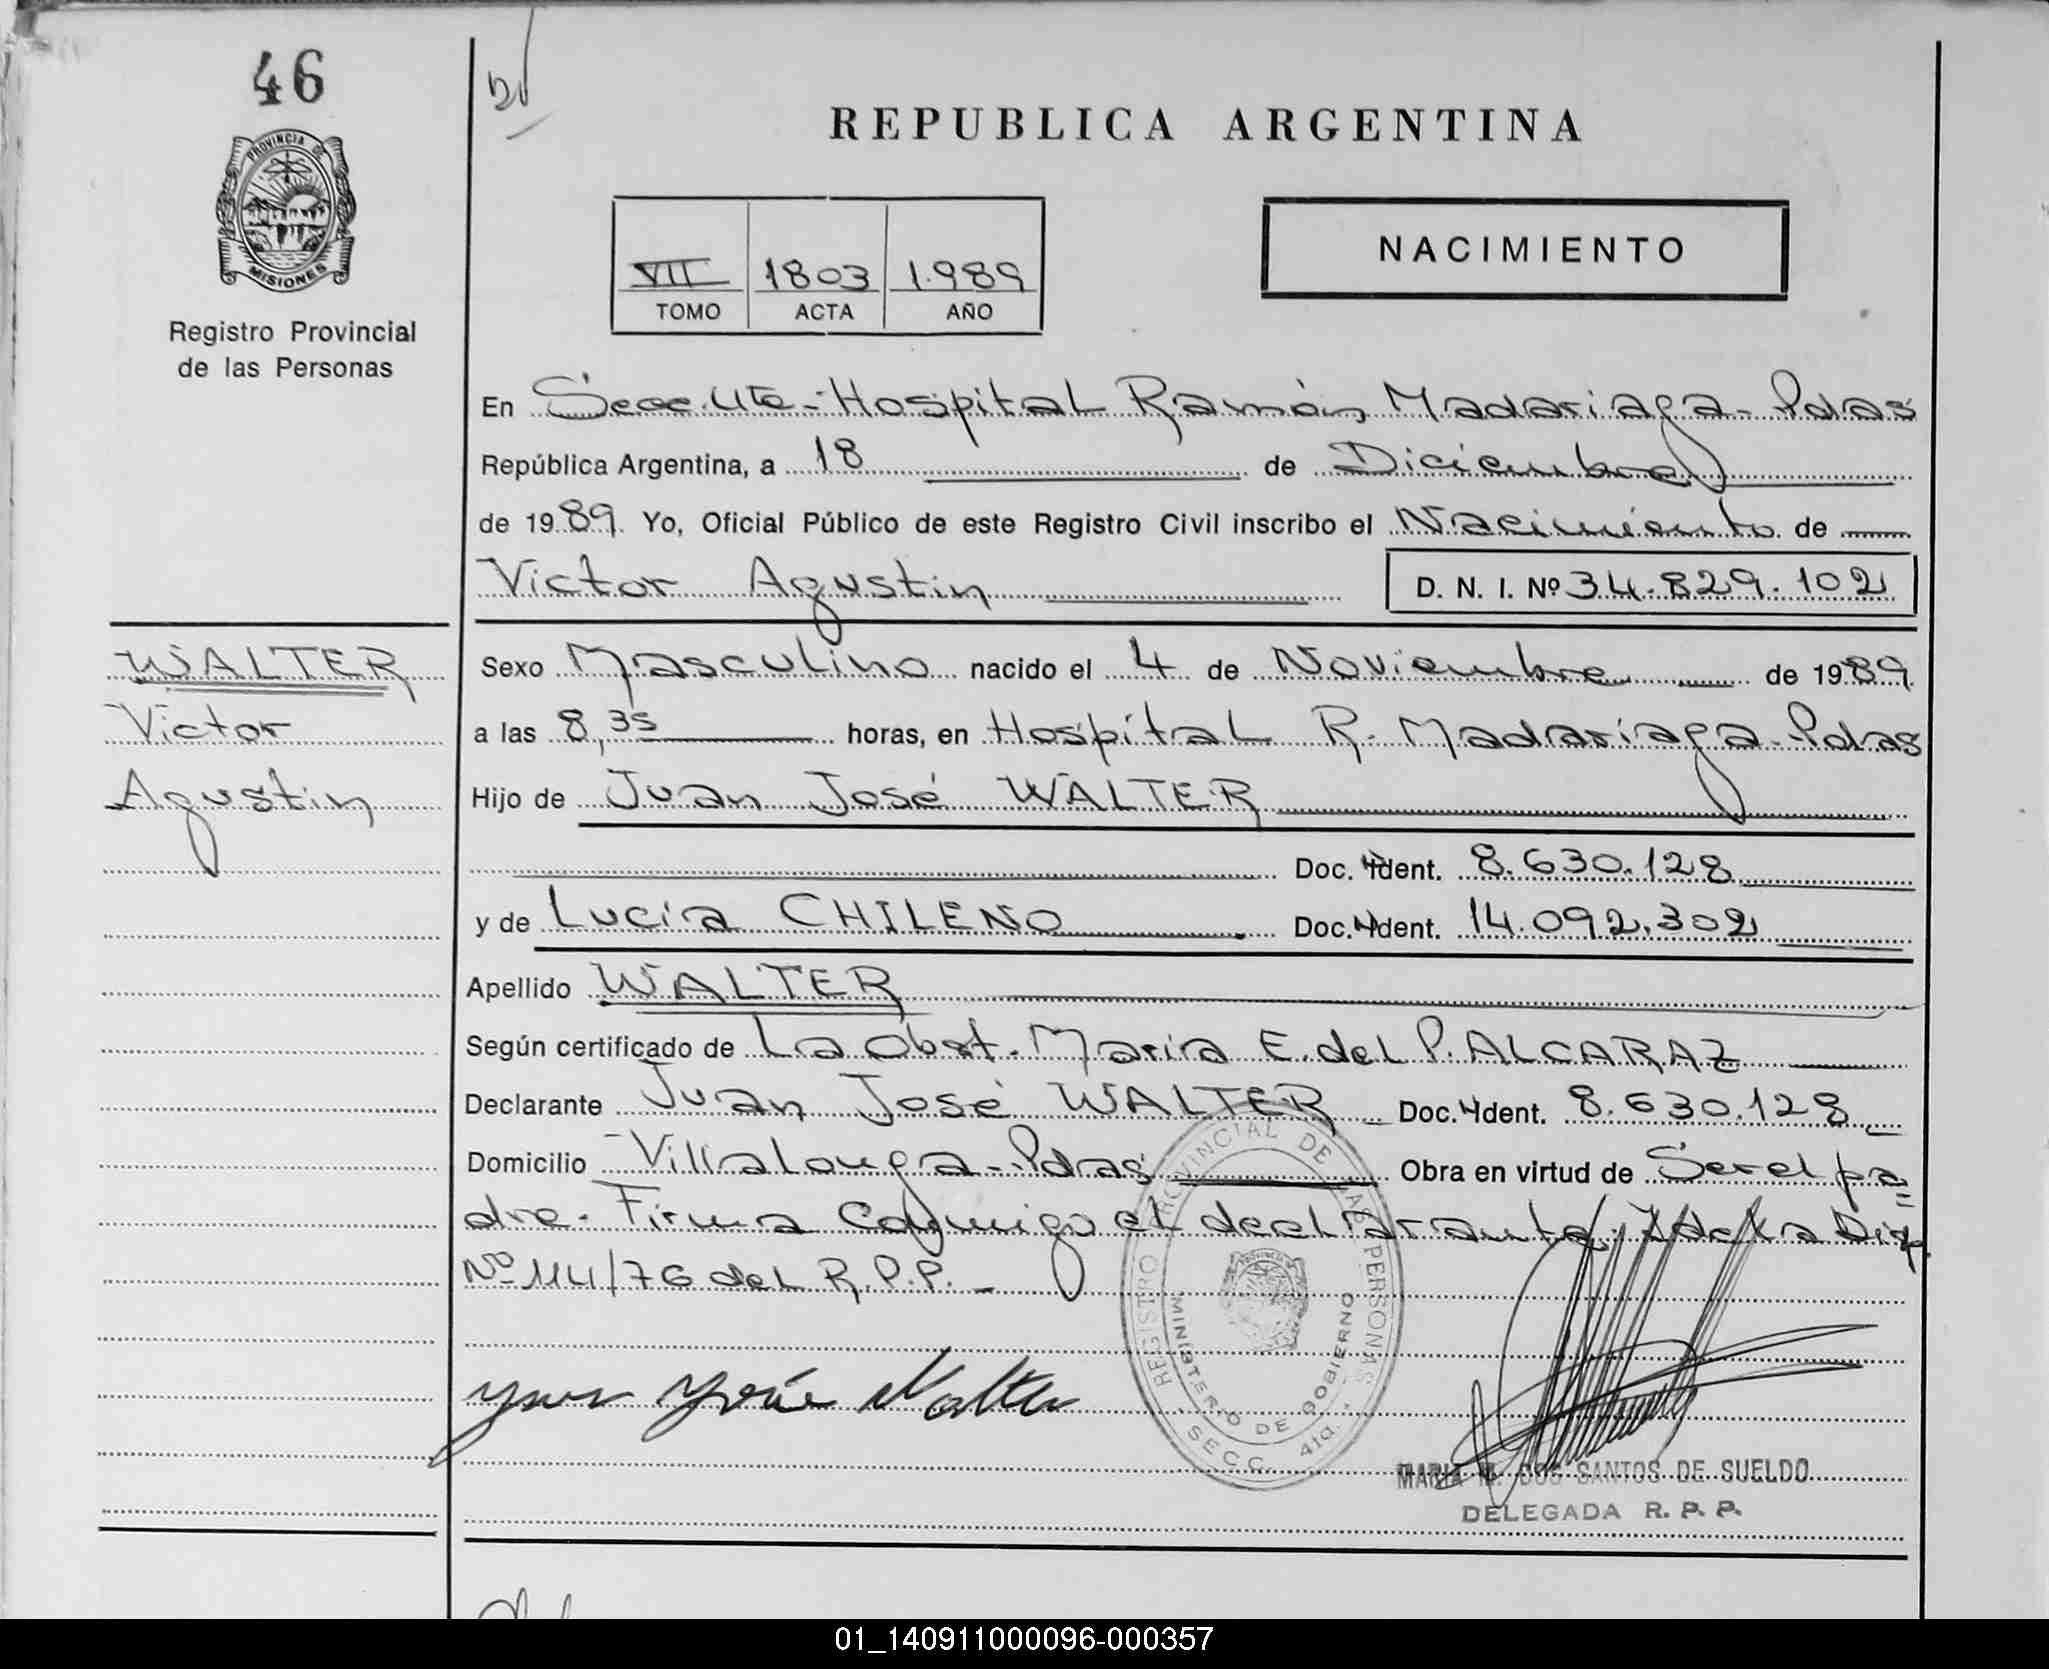 46
PROVINCIA DE
MISIONES
Registro Provincial
de las Personas
REPUBLICA ARGENTINA
VII 1803 1.989
TOMO ACTA AÑO
NACIMIENTO
En Secc. 4ta-Hospital Ramón Madariaga-Pdas
República Argentina, a 18 de Diciembre
de 1989. Yo, Oficial Público de este Registro Civil inscribo el Nacimiento de
Victor Agustin D. N. I. Nº 34.829.102
WALTER
Victor
Agustin
Sexo Masculino nacido el 4 de Noviembre de 1989
a las 8,35 horas, en Hospital R. Madariaga-Pdas
Hijo de Juan José WALTER
Doc. Ident. 8.630.128
y de Lucia CHILENO Doc. Ident. 14.092.302
Apellido WALTER
Según certificado de La Obst. Maria E. del P. ALCARAZ
Declarante Juan José WALTER Doc. Ident. 8.630.128
Domicilio Villalonga-Pdas Obra en virtud de Ser el pa=
dre. Firma Conmigo el declarante, de la Disp
Nº 114/76 del R.P.P.-
REGISTRO PROVINCIAL DE LAS PERSONAS
MINISTERIO DE GOBIERNO
SECC. 4ta.
Juan José Walter
MARIA DOS SANTOS DE SUELDO
DELEGADA R. P. P.
01_140911000096-000357